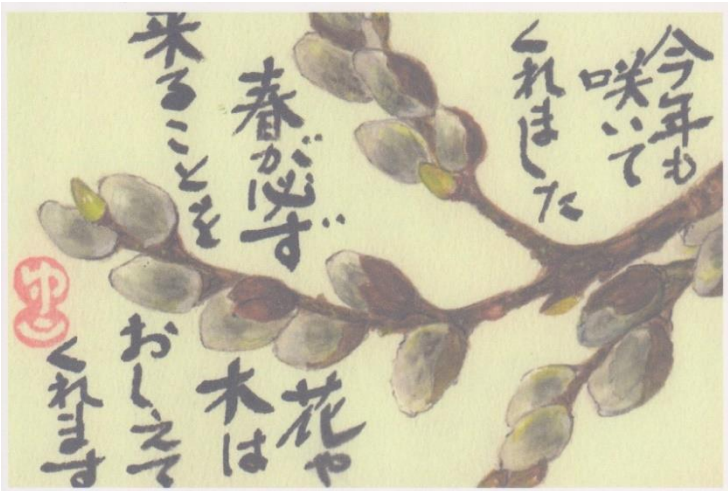 今年も
咲いて
くれました
春が必ず
来ることを
花や
木は
おしえて
くれます
ゆ